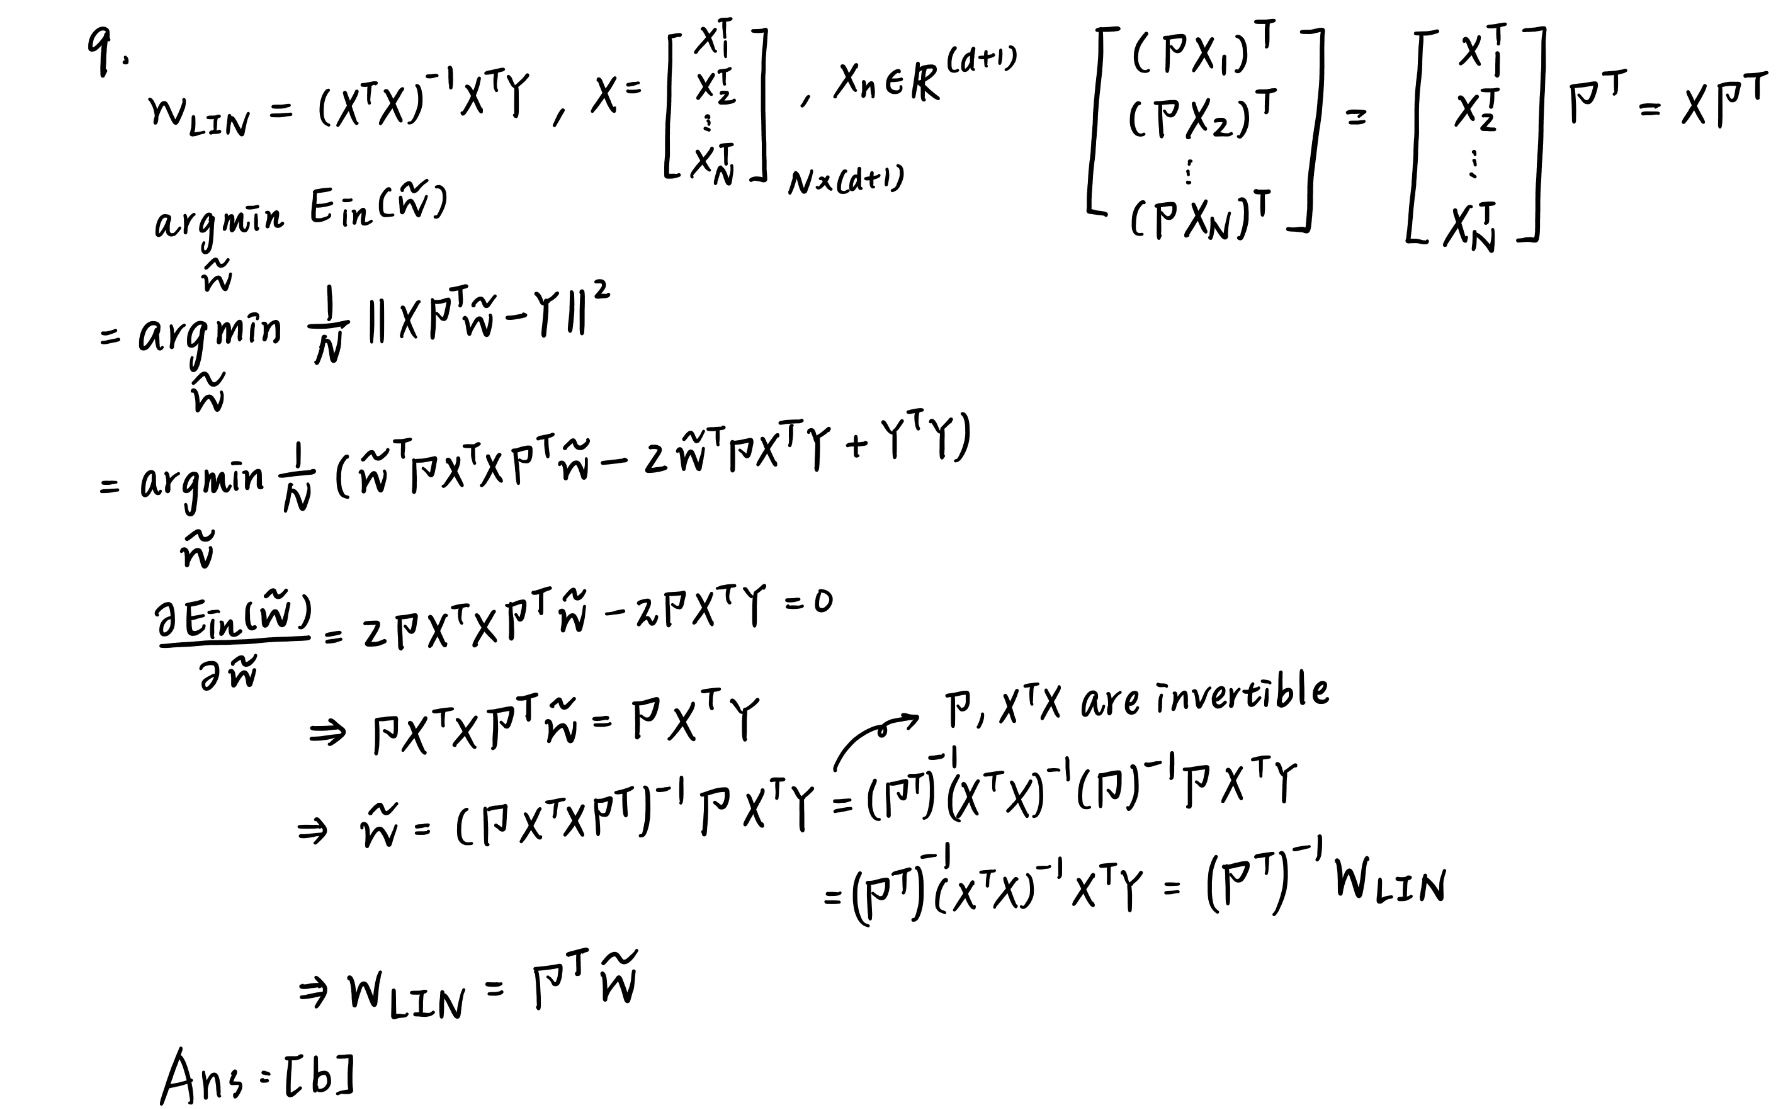 9.
W_LIN = (X^T X)^{-1} X^T Y , X = [X_1^T X_2^T ⋮ X_N^T]_{N×(d+1)} , X_n ∈ R^{(d+1)} [(PX_1)^T (PX_2)^T ⋮ (PX_N)^T] = [X_1^T X_2^T ⋮ X_N^T] P^T = XP^T
argmin_{w̃} E_in(w̃)
= argmin_{w̃} 1/N ||XP^T w̃ - Y||^2
= argmin_{w̃} 1/N (w̃^T P X^T X P^T w̃ - 2 w̃^T P X^T Y + Y^T Y)
∂E_in(w̃)/∂w̃ = 2PX^T X P^T w̃ - 2PX^T Y = 0
⇒ PX^T X P^T w̃ = PX^T Y
P, X^T X are invertible
⇒ w̃ = (PX^T X P^T)^{-1} P X^T Y = (P^T)^{-1} (X^T X)^{-1} (P)^{-1} P X^T Y
= (P^T)^{-1} (X^T X)^{-1} X^T Y = (P^T)^{-1} W_LIN
⇒ W_LIN = P^T w̃
Ans = [b]